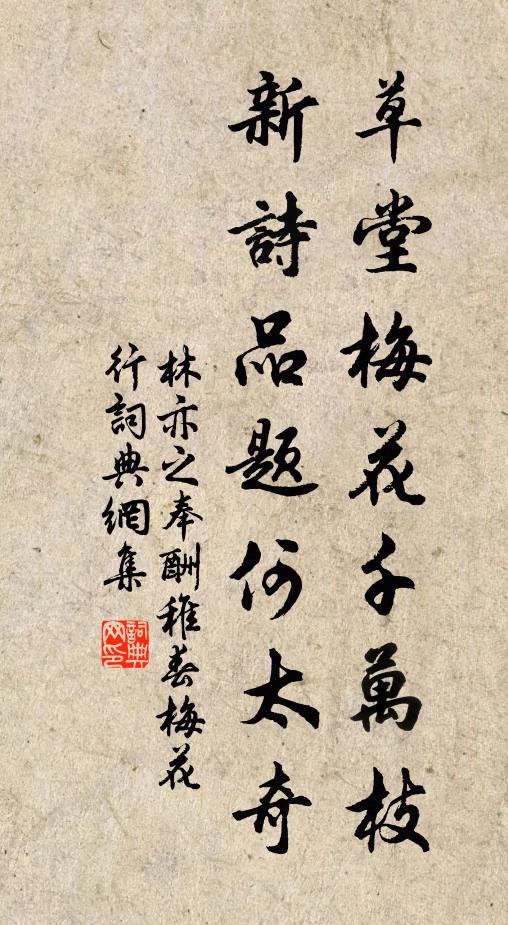 草堂梅花千萬枝
新詩品題何太奇
林亦之奉酬稚春梅花
行詞典網集
詞典
网印